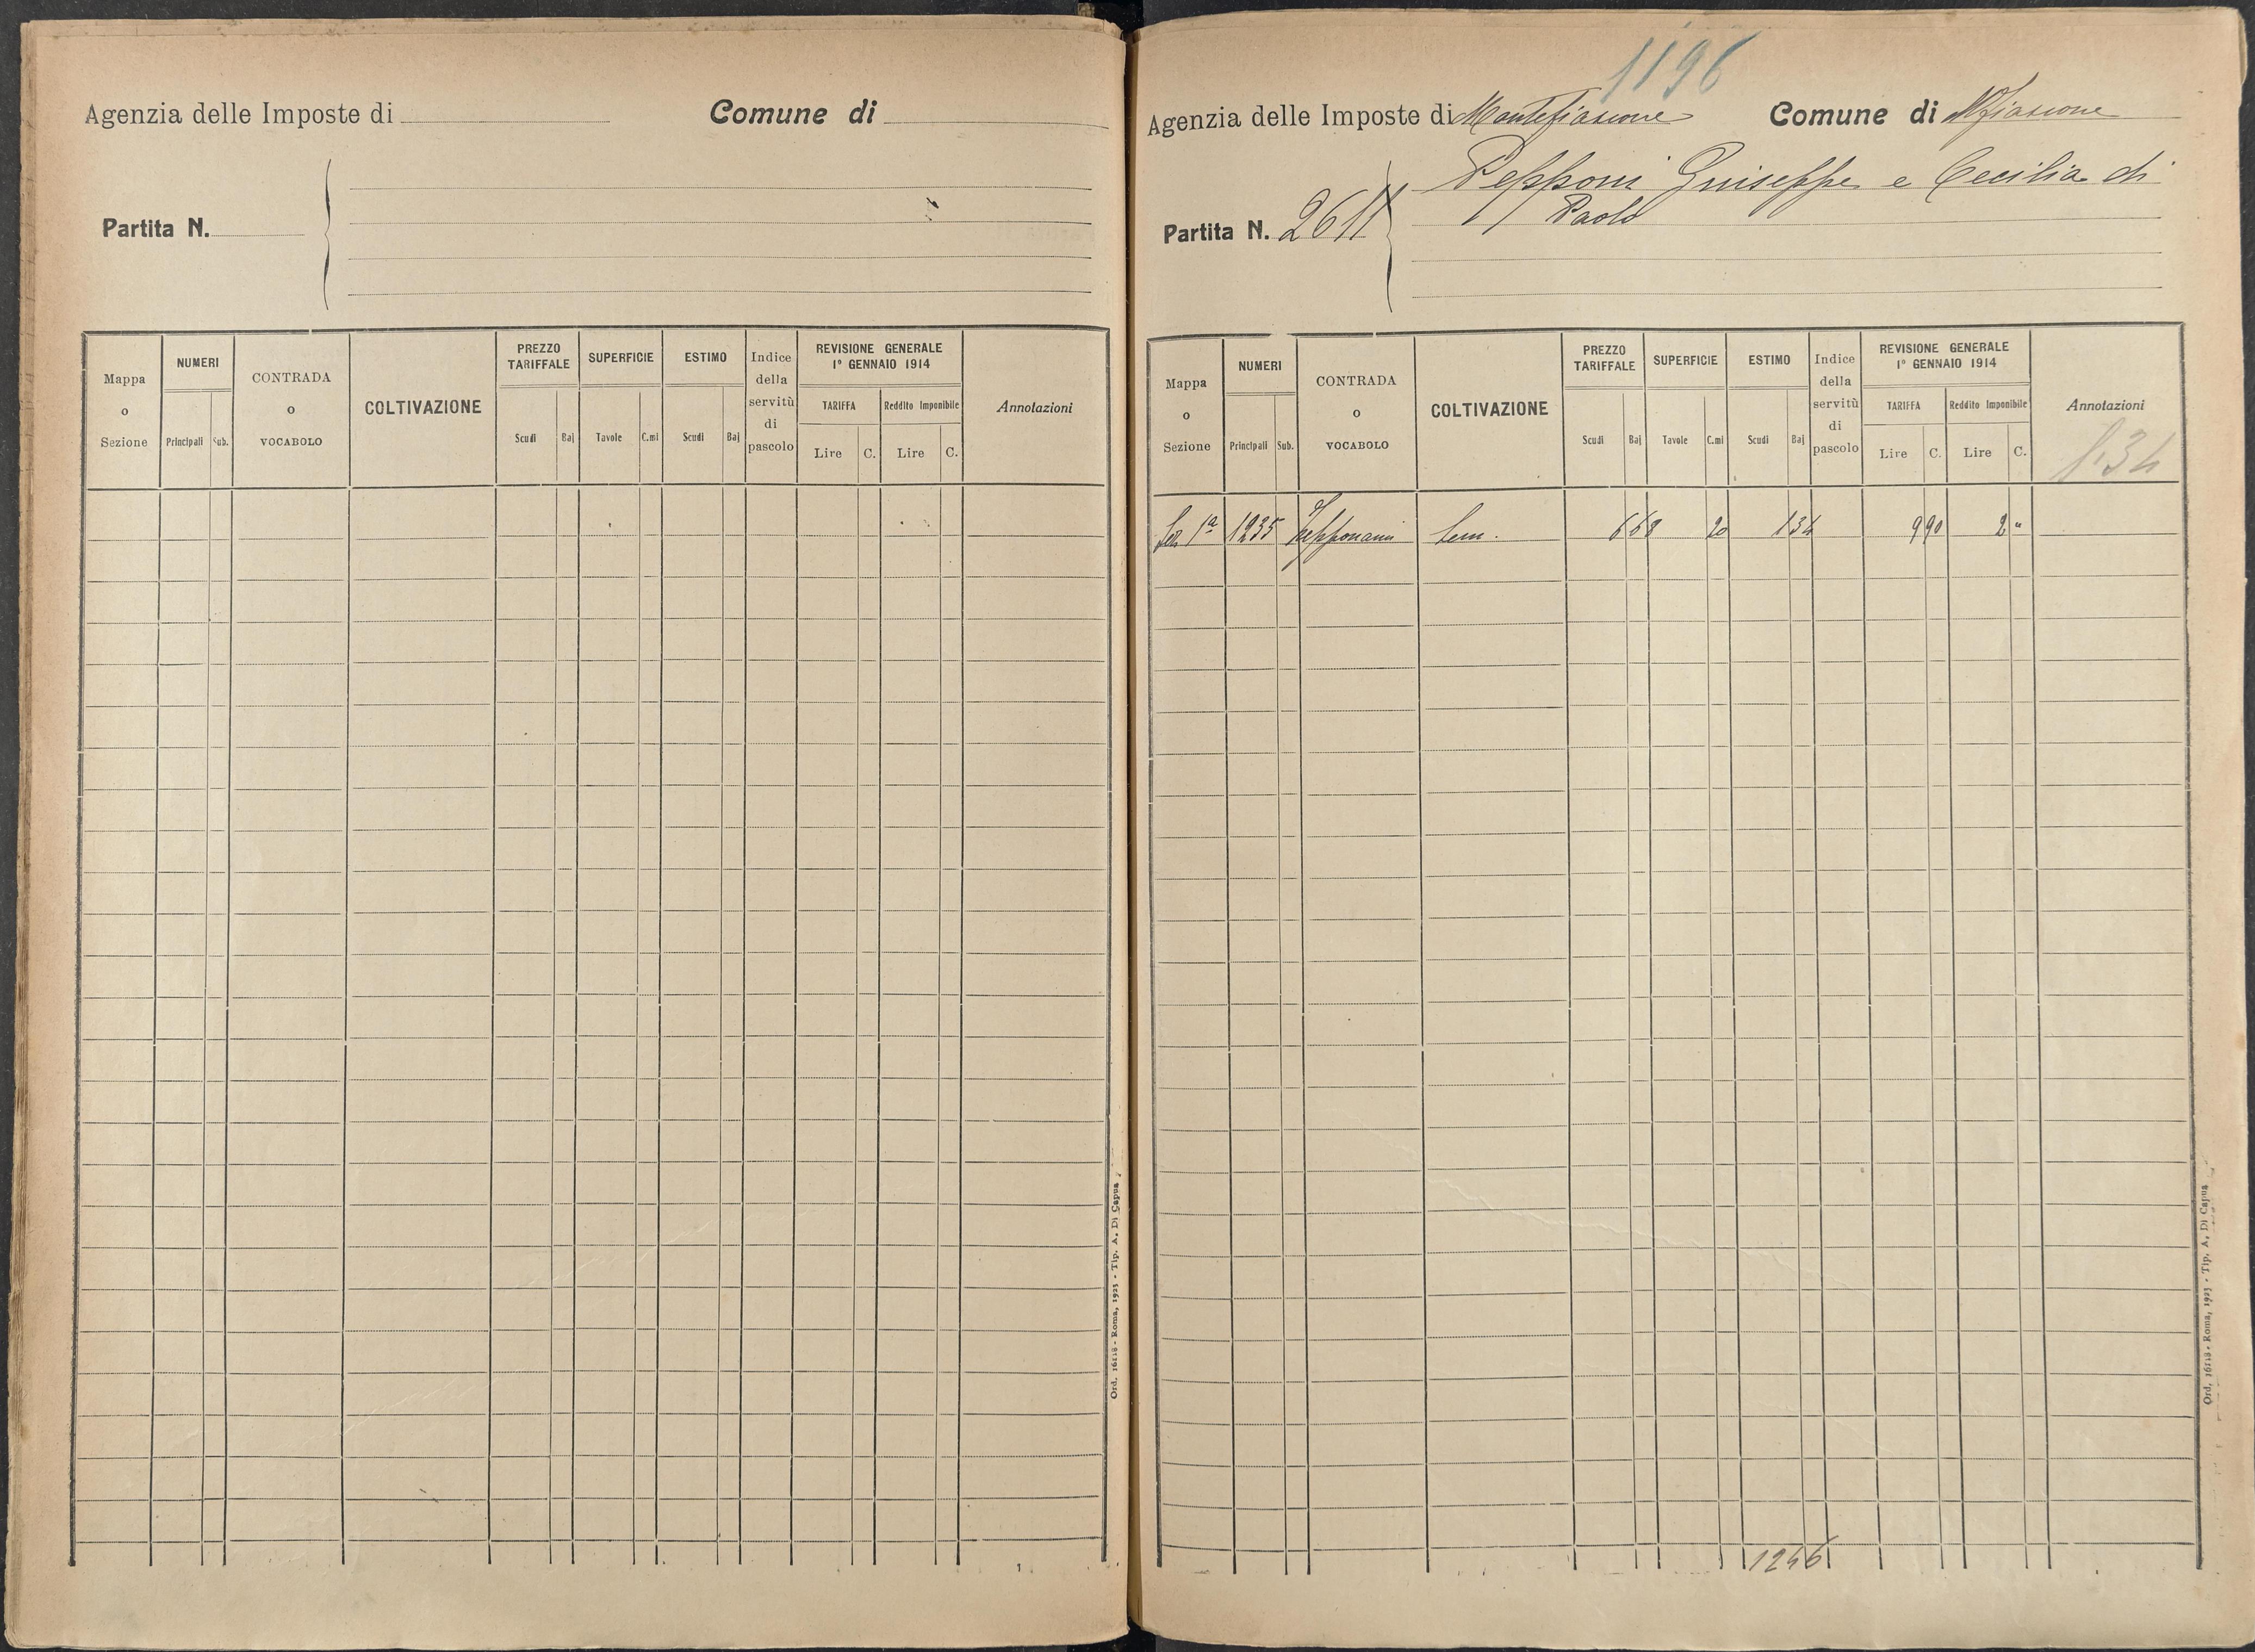 Agenzia delle Imposte di
Comune di
Partita N.
Mappa o Sezione
NUMERI
Principali
Sub.
CONTRADA o VOCABOLO
COLTIVAZIONE
PREZZO TARIFFALE
Scudi
Baj
SUPERFICIE
Tavole
C.mi
ESTIMO
Scudi
Baj
Indice della servitù di pascolo
REVISIONE GENERALE
1º GENNAIO 1914
TARIFFA
Lire
C.
Reddito Imponibile
Lire
C.
Annotazioni
Ord. 16118 - Roma, 1923 - Tip. A. Di Capua
1196
Agenzia delle Imposte di Montefiascone
Comune di Mfiascone
Pepponi Giuseppe e Cecilia di
Paolo
Partita N. 2611
Mappa o Sezione
NUMERI
Principali
Sub.
CONTRADA o VOCABOLO
COLTIVAZIONE
PREZZO TARIFFALE
Scudi
Baj
SUPERFICIE
Tavole
C.mi
ESTIMO
Scudi
Baj
Indice della servitù di pascolo
REVISIONE GENERALE
1º GENNAIO 1914
TARIFFA
Lire
C.
Reddito Imponibile
Lire
C.
Annotazioni
1ª 1235 Sem. 668 20 134 990 2 "
1246
Ord. 16118 - Roma, 1923 - Tip. A. Di Capua